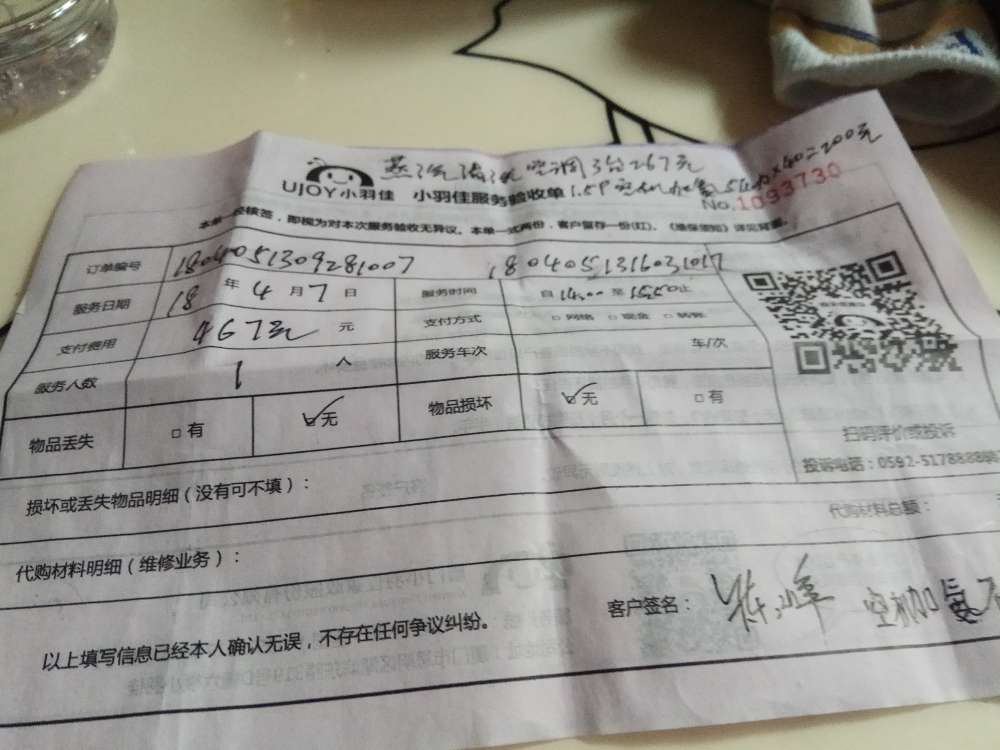 蒸汽清洗空调3台267元
UJOY小羽佳 小羽佳服务验收单 1.5P空机加氨5 ×40=200元
No.1093730
本单一经核签，即视为对本次服务验收无异议。本单一式两份，客户留存一份(红)。《维保须知》详见背面。
订单编号 1804051309281007 1804051316031017
服务日期 18年4月7日 服务时间 自14:00至1550止
支付费用 467元 元 支付方式 □网络 □现金 □转账
服务人数 1人 服务车次 车/次
物品丢失 □有 ☑无 物品损坏 ☑无 □有
扫码评价或投诉
投诉电话：0592-5178888
损坏或丢失物品明细（没有可不填）：
代购材料总额：
代购材料明细（维修业务）：
客户签名： 空机加氨
以上填写信息已经本人确认无误，不存在任何争议纠纷。